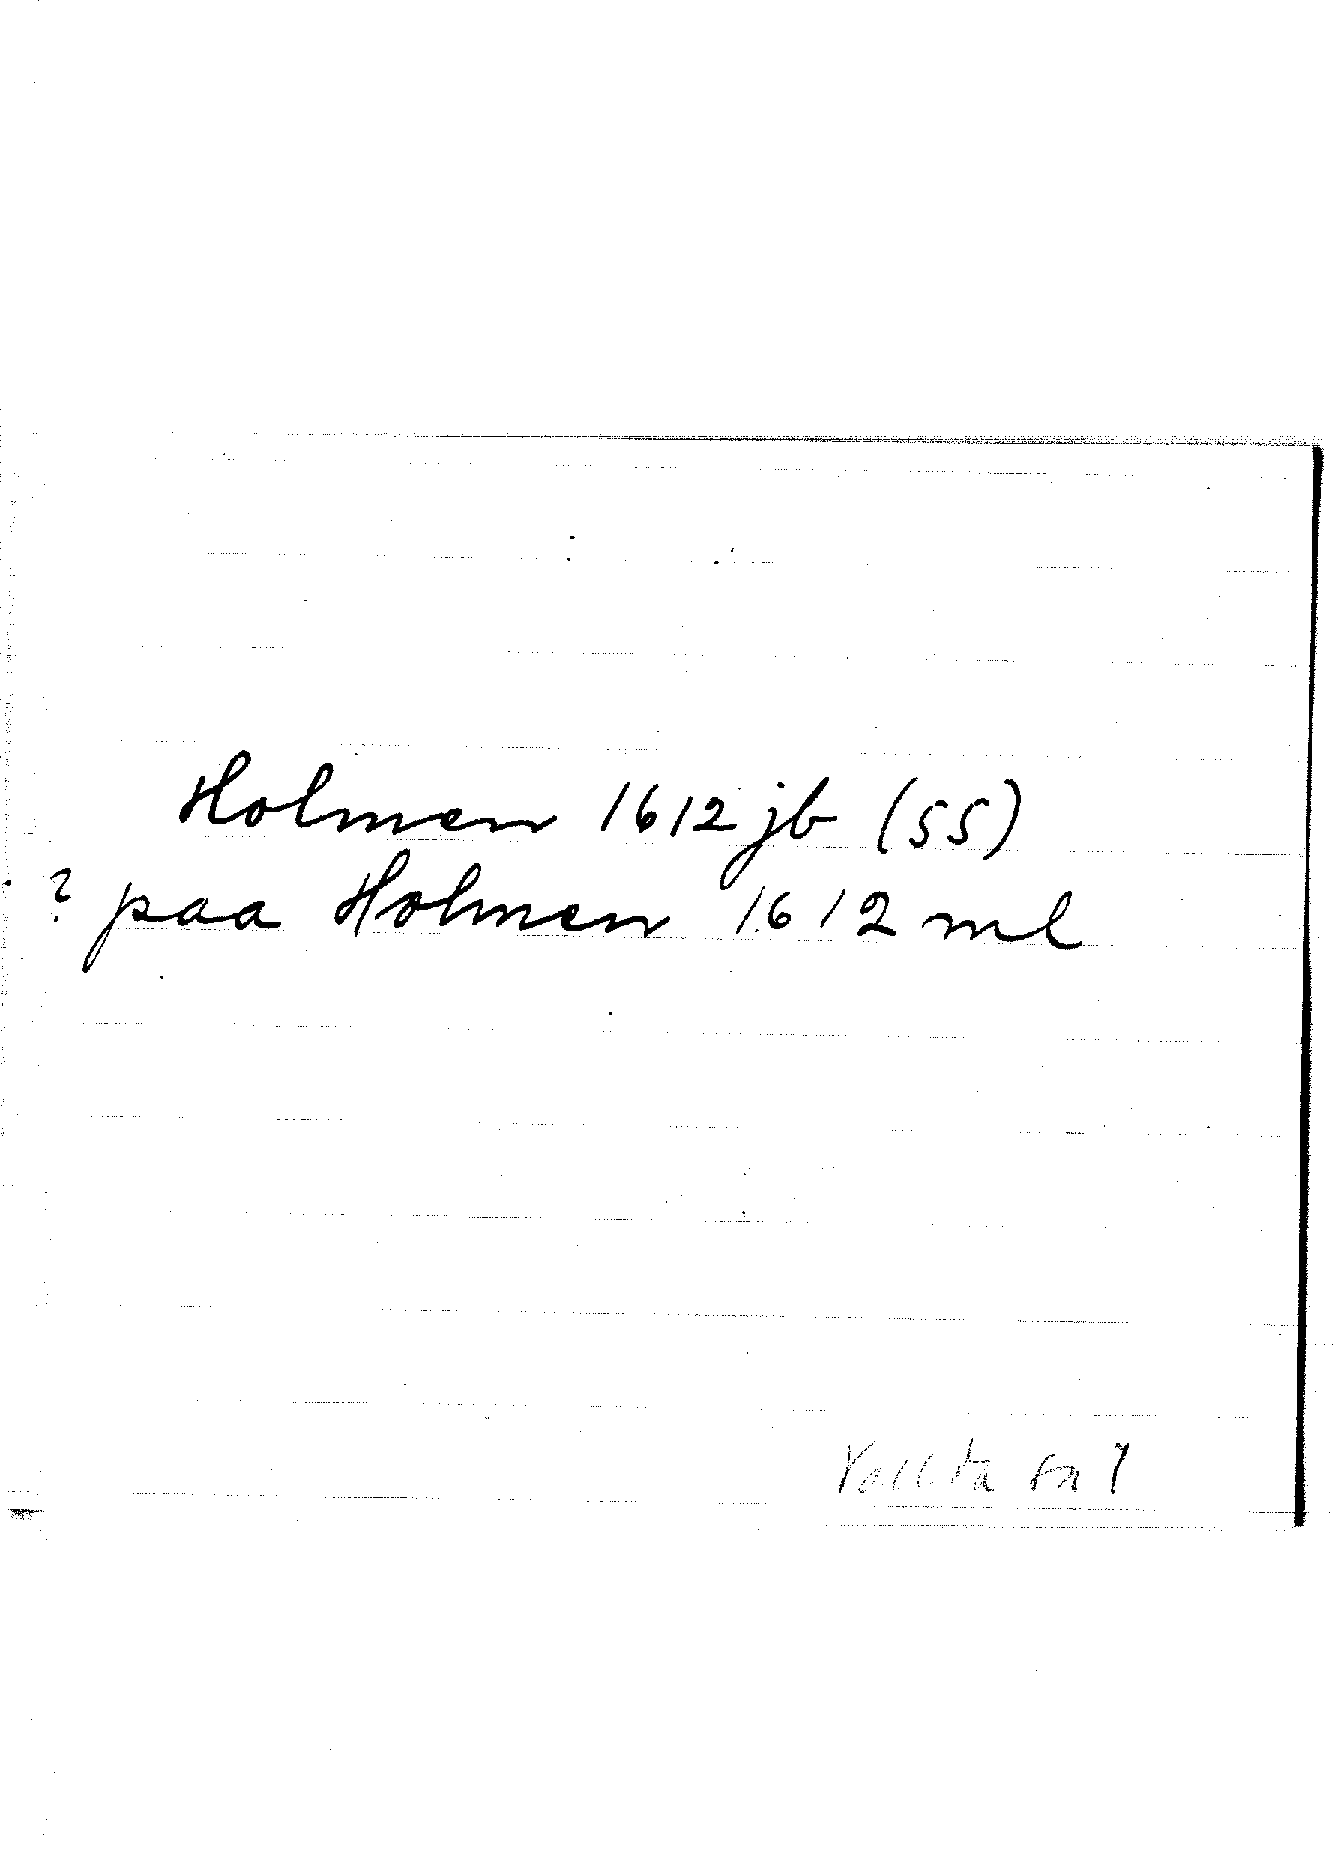 Holmen 1612 jb (55)
? paa Holmen 1612 ml
Valla sn ?